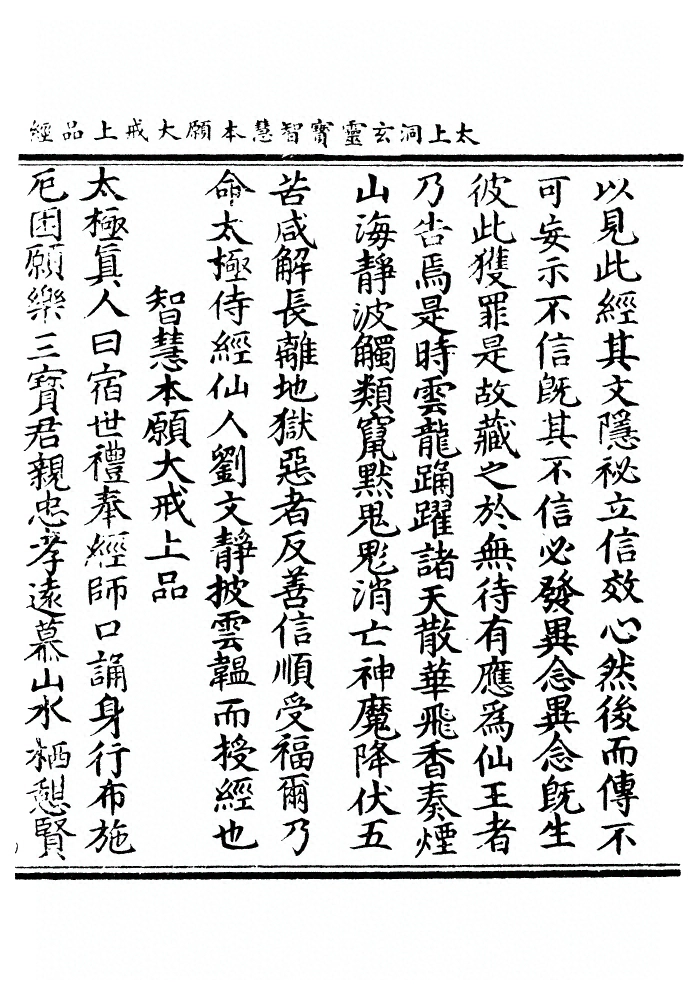 太上洞玄靈寳智慧本願大戒上品經
以見此經其文隱祕立信效心然後而傳不
可妄示不信旣其不信必發異念異念旣生
彼此獲罪是故藏之於無待有應爲仙王者
乃告焉是時雲龍踊躍諸天散華飛香奏煙
山海靜波觸類竄黙鬼鬽消亡神魔降伏五
苦咸解長離地獄惡者反善信順受福爾乃
命太極侍經仙人劉文靜披雲韞而授經也
智慧本願大戒上品
太極眞人曰宿世禮奉經師口誦身行布施
厄困願樂三寶君親忠孝遠慕山水栖憇賢